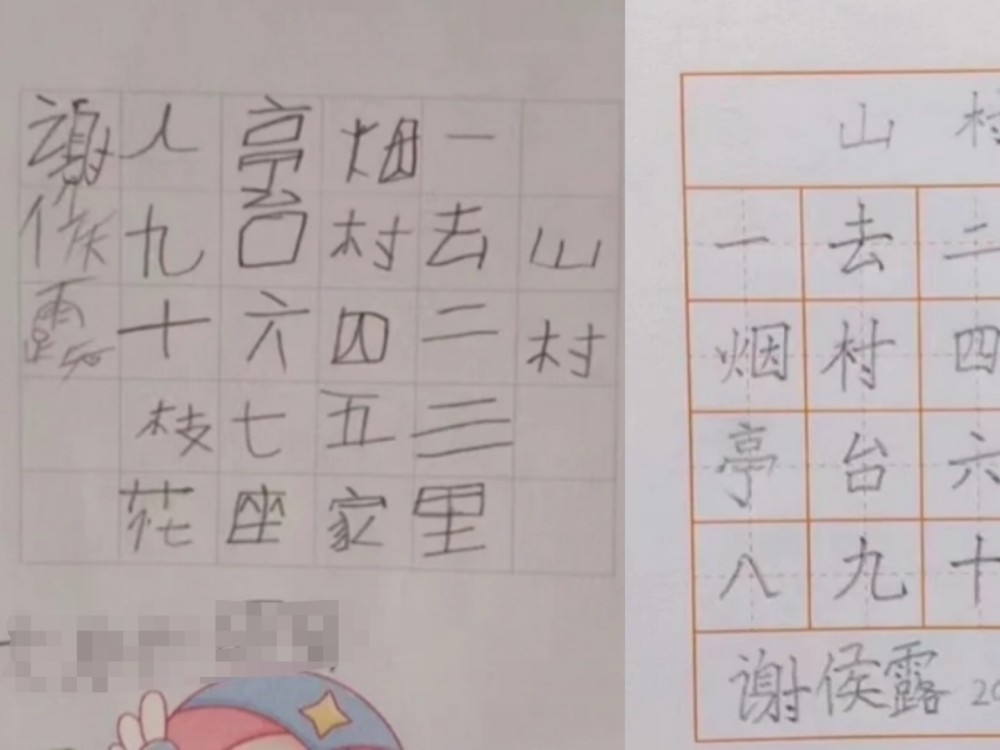 山村
一去二三里
烟村四五家
亭台六七座
八九十枝花
谢侯露
山村
一去二
烟村四
亭台六
八九十
谢侯露 20